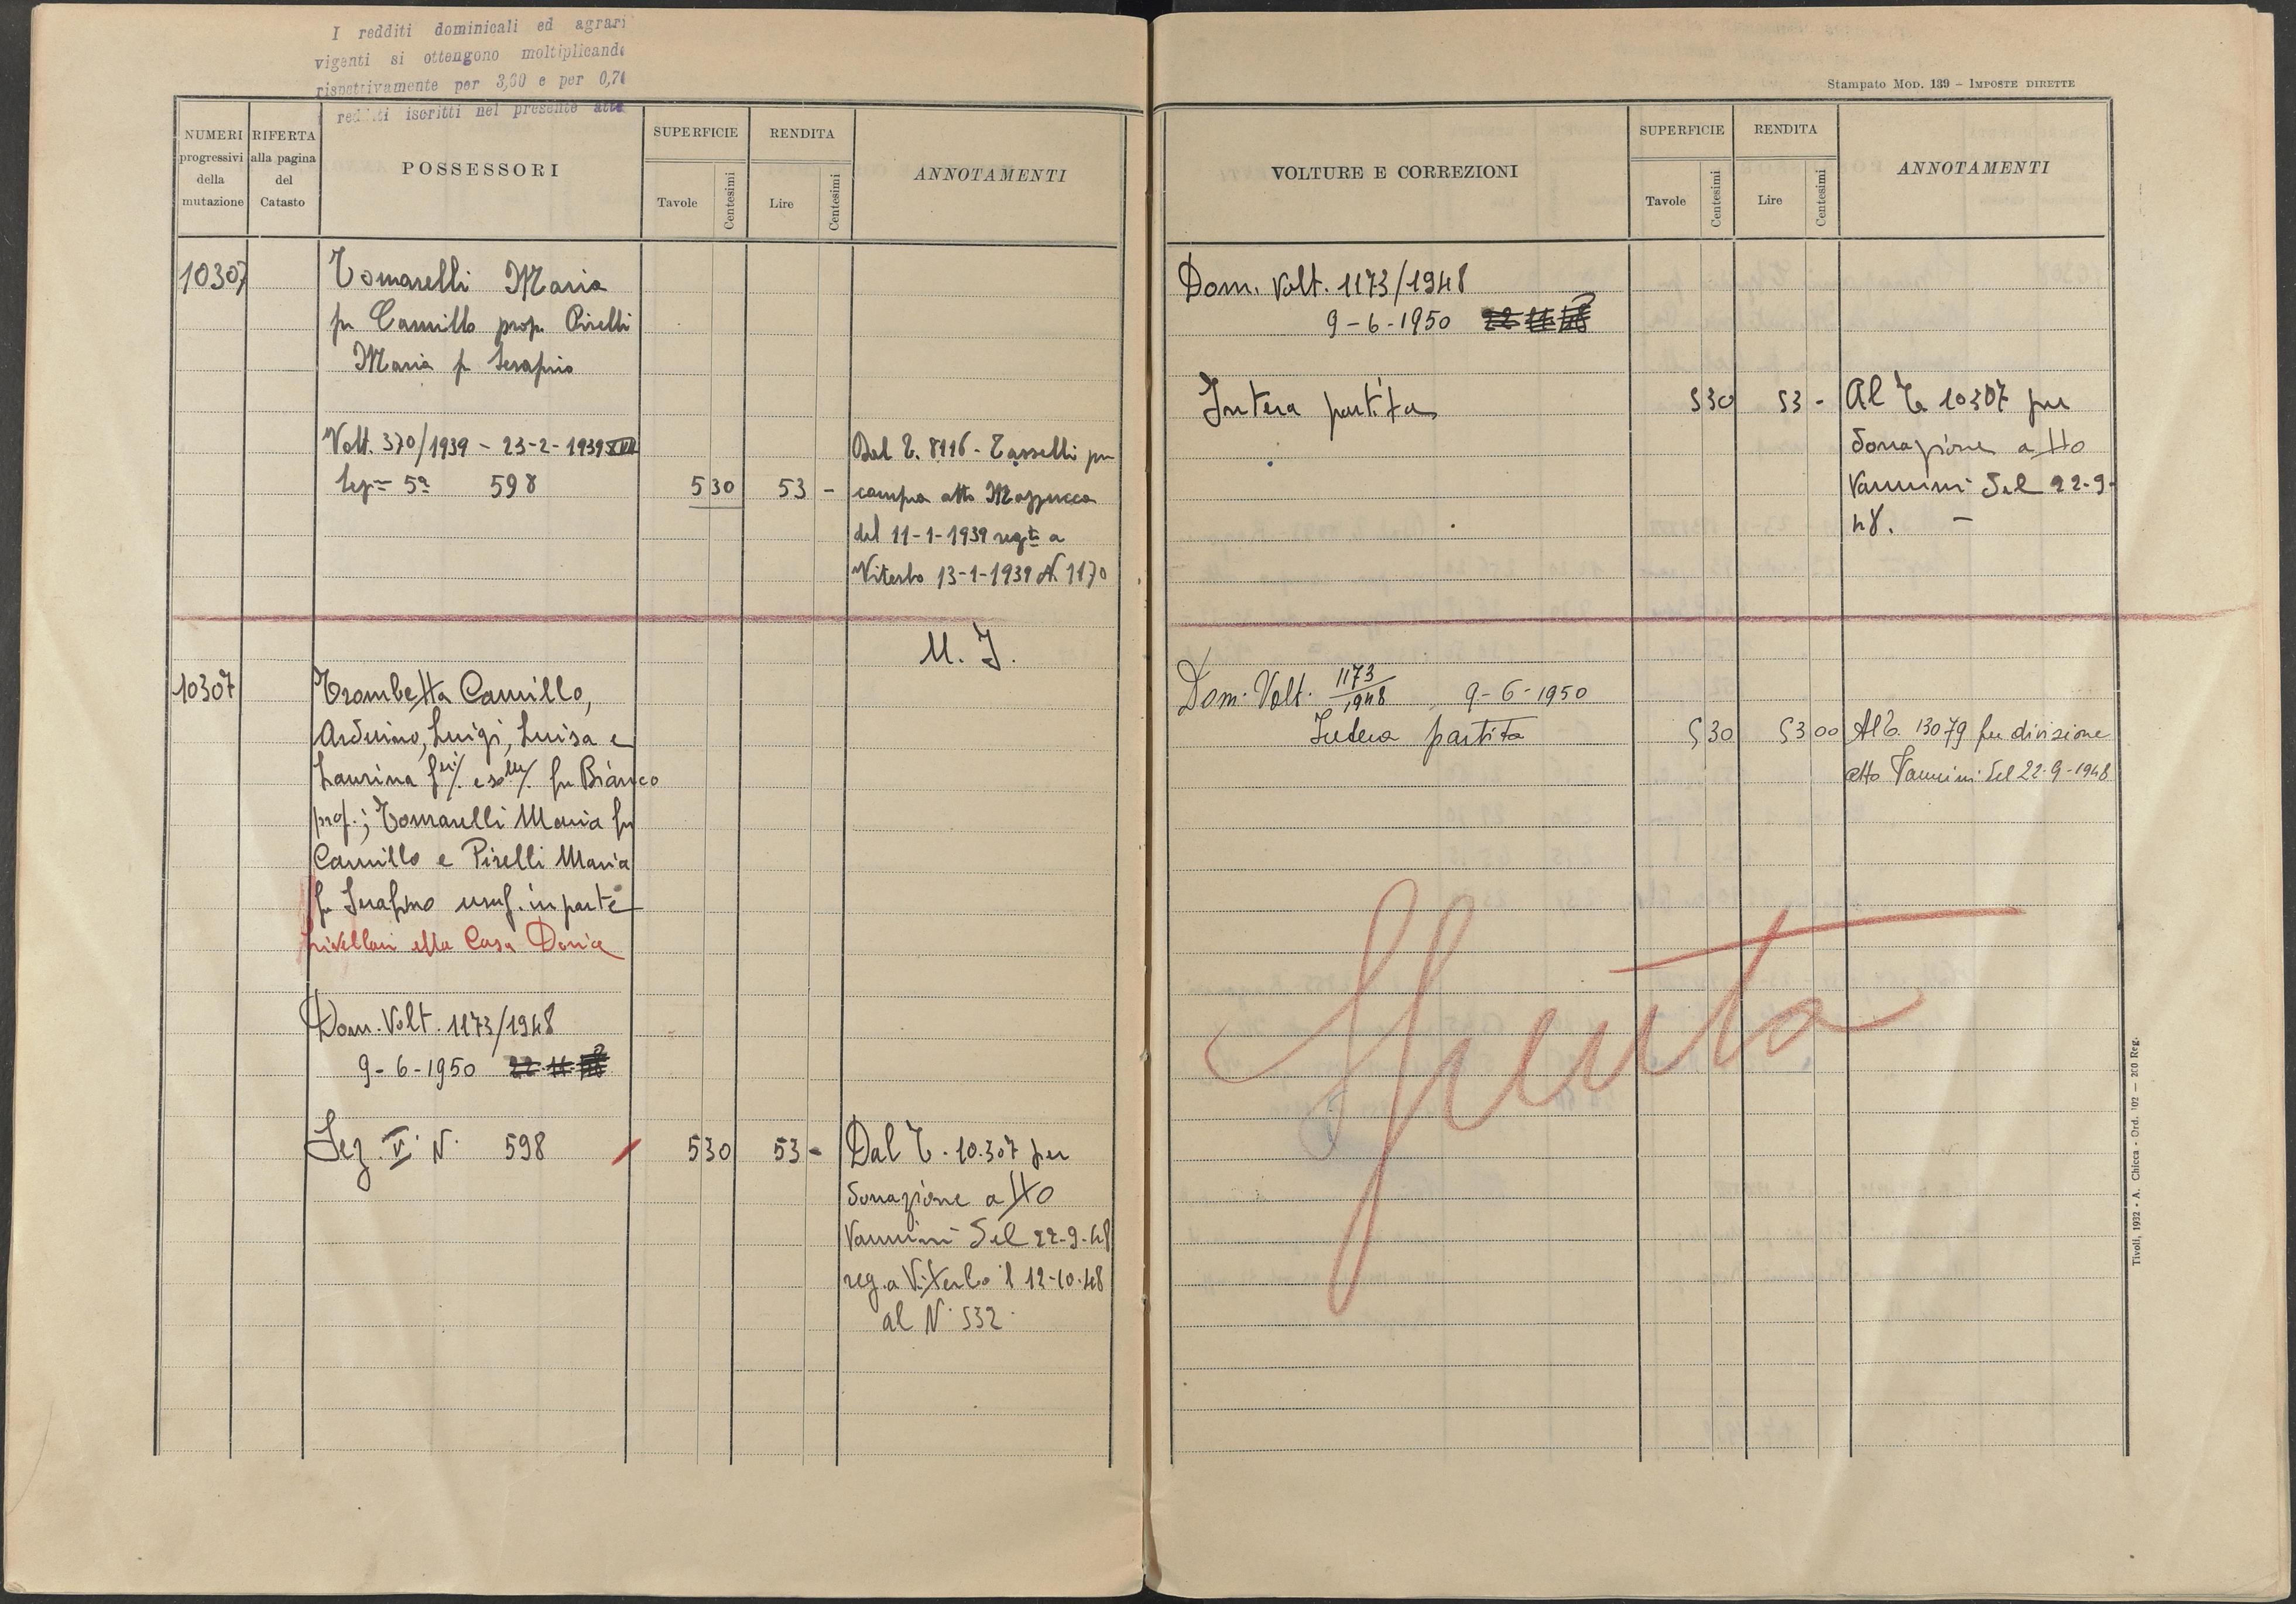 I redditi dominicali ed agrari
vigenti si ottengono moltiplicando
rispettivamente per 3,60 e per 0,70
redditi iscritti nel presente atto
NUMERI progressivi della mutazione
RIFERTA alla pagina del Catasto
POSSESSORI
SUPERFICIE
Tavole
Centesimi
RENDITA
Lire
Centesimi
ANNOTAMENTI
10307
Tomarelli Maria
fu Camillo prop. Pirelli
Maria f. Serafino
Volt. 370/1939 - 23-2-1939 XVII
Sez= 5a 598 5 30 53 -
Dal T. 8116 - Tasselli per
compra atto Mazzucca
del 11-1-1939 regto a
Viterbo 13-1-1939 N. 1170
M. I.
10307
Trombetta Camillo,
Arduino, Luigi, Luisa e
Laurina f.lli/. e so.lle/. fu Bianco
prop.; Tomarelli Maria fu
Camillo e Pirelli Maria
fu Serafino usuf. in parte
Livellari alla Casa Doria
Dom. Volt. 1173/1948
9-6-1950
Sez. V. N. 598 5 30 53 -
Dal T. 10.307 per
donazione atto
Vannini del 22-9-48
reg. a Viterbo il 12-10-48
al N. 532
Stampato MOD. 139 - IMPOSTE DIRETTE
VOLTURE E CORREZIONI
SUPERFICIE
Tavole
Centesimi
RENDITA
Lire
Centesimi
ANNOTAMENTI
Dom. Volt. 1173/1948
9-6-1950
Intera partita 5 30 53 -
Al T. 10307 per
donazione atto
Vannini del 22-9-
48. -
Dom. Volt. 1173/1948 9-6-1950
Intera partita 5 30 53 00
Al T. 13079 per divisione
atto Vannini del 22-9-1948
Spenta
Tivoli, 1932 - A. Chicca - Ord. 102 — 200 Reg.